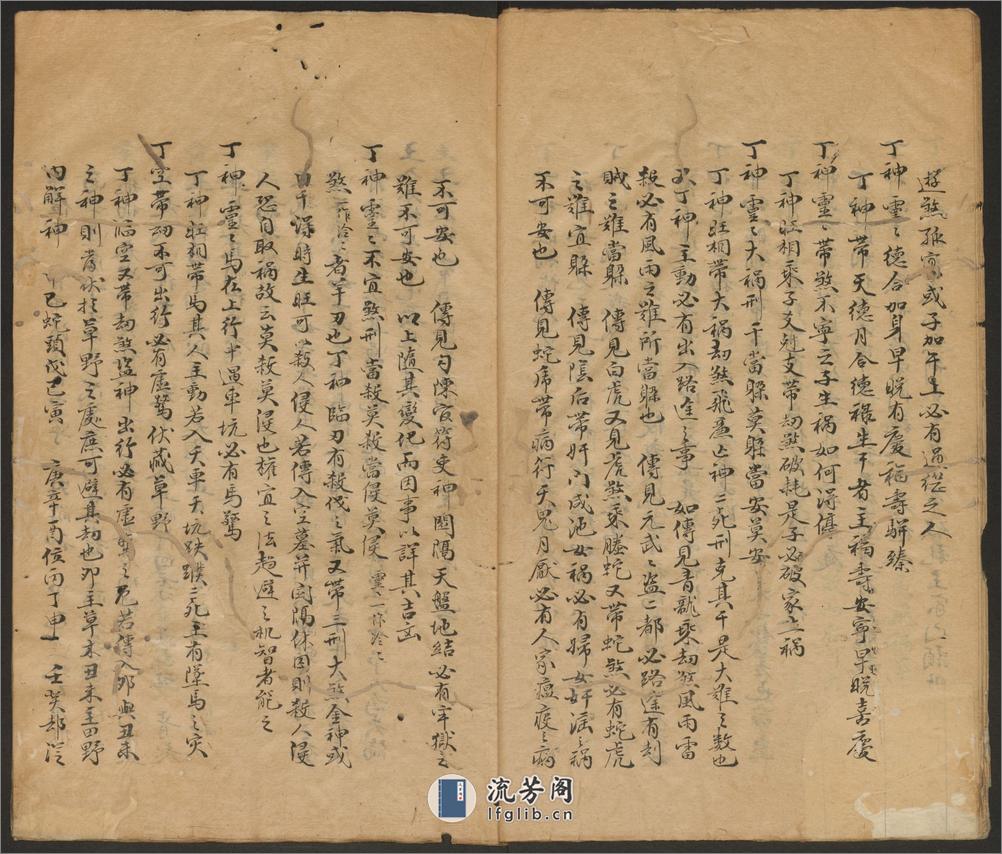 遊煞孤寡或子加午上必有過繼之人
丁神靈靈德合加身早晚有慶福壽駢臻
丁神帶天德月合德祿生干者主福壽安寧早晚喜慶
丁神靈靈帶煞不寧立子生禍如何得
丁神旺相乘子支剋支帶劫煞破耗是子必破家之禍
丁神靈靈大禍刑干當躱莫躱當安莫安
丁神旺相帶大禍劫煞飛廉亡神二死刑克其干是大難之數也
丁神主動必有出入路途之事 如傳見青龍乘劫煞風雨雷
殺必有風雨之難所當躱也 傳見元武之盜二都必路途有刦
賊之難當躱 傳見白虎又見虎煞乘螣蛇又帶蛇煞必有蛇虎
之難宜躱 傳見陰后帶奸门咸池女禍必有婦女奸淫之禍
不可安也 傳見蛇虎帶病符天鬼月厭必有人家瘟疫之病
不可安也 傳見勾陳官符吏神関隔天盤地結必有牢獄之
難不可安也 以上隨其變化而因事以詳其吉凶
丁神靈靈不宜煞刑當殺莫殺當侵莫侵
煞者羊刃也丁神臨刃有殺伐之氣又帶三刑大煞金神或
日干得時生旺可以殺人侵人若傳入空墓并関隔休囚則殺人侵
人恐自取禍故云莫殺莫侵也權宜之法趨避之机智者能之
丁神靈靈馬在上行半過車坑必有馬驚
丁神旺相帶馬其人主動若入天車天坑跌蹼二死主有墜馬之灾
丁空帶劫不可出行必有虛驚伏藏草野
丁神临空又带劫煞盜神出行必有虛驚之危若傳入卯與丑未
之神則當伏於草野之處庶可避其劫也卯主草木丑未主田野
内解神 甲巳蛇頭戊巳寅 庚辛酉位丙丁申 壬癸却從
流芳阁
lfglib.cn